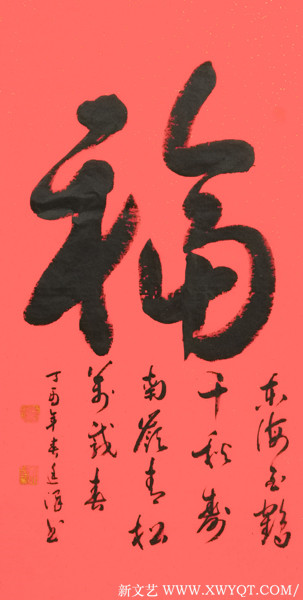 福
东海玉鹤
千秋寿
南岭青松
萬载春
丁酉年春廷泽书
新文艺 WWW.XWYQT.COM/